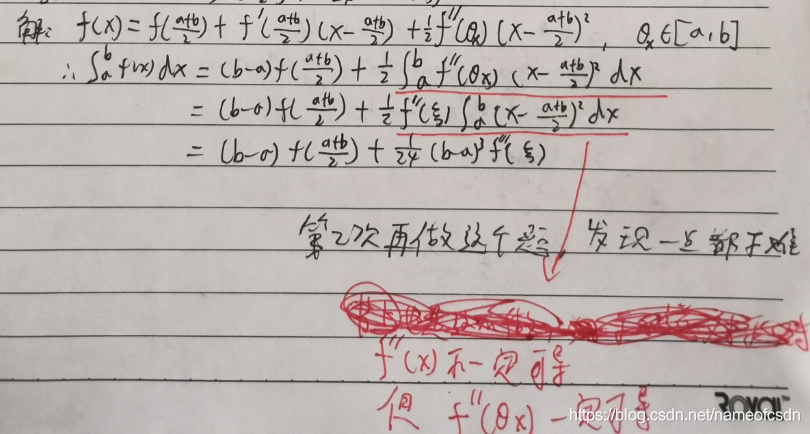 解: f(x) = f(\frac{a+b}{2}) + f'(\frac{a+b}{2})(x-\frac{a+b}{2}) + \frac{1}{2}f''(θ_x)(x-\frac{a+b}{2})^2, θ_x∈[a,b]
∴ ∫_a^b f(x)dx = (b-a)f(\frac{a+b}{2}) + \frac{1}{2}∫_a^b f''(θ_x)(x-\frac{a+b}{2})^2 dx
= (b-a)f(\frac{a+b}{2}) + \frac{1}{2}f''(ξ)∫_a^b(x-\frac{a+b}{2})^2 dx
= (b-a)f(\frac{a+b}{2}) + \frac{1}{24}(b-a)^3 f''(ξ)
第2次再做这个题,发现一点都不难
f''(x)不一定可导
但 f''(θx)一定可导
ROYAL
https://blog.csdn.net/nameofcsdn